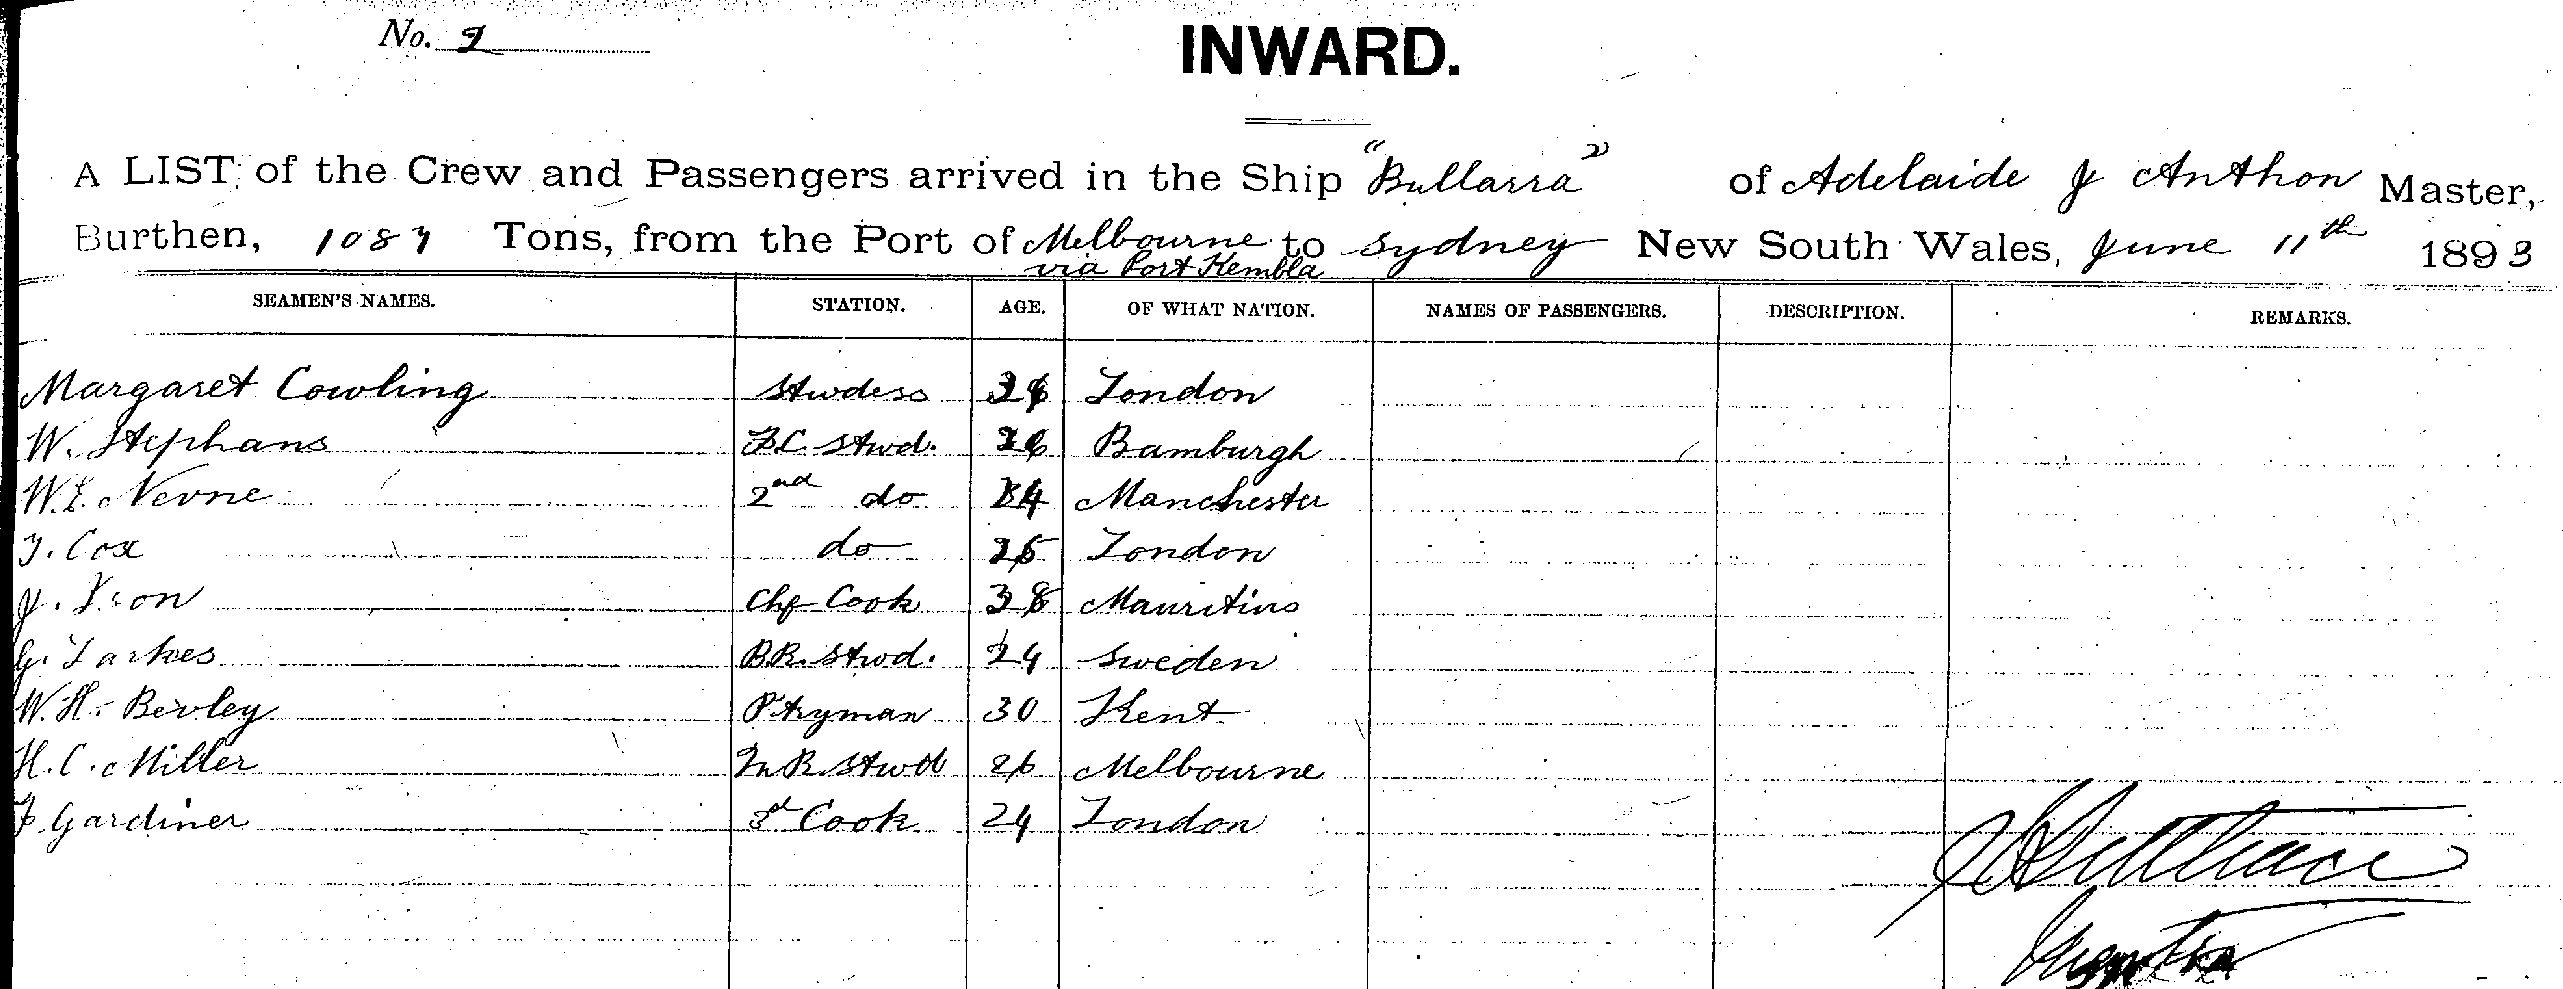 No. 9
INWARD.
A LIST of the Crew and Passengers arrived in the Ship "Bullarra" of Adelaide J Anthon Master,
Burthen, 1087 Tons, from the Port of Melbourne to Sydney New South Wales, June 11th 1893
via Port Kembla
SEAMEN'S NAMES. STATION. AGE. OF WHAT NATION. NAMES OF PASSENGERS. DESCRIPTION. REMARKS.
Margaret Cowling Stwdess London
W. Stephans F.C. Stwd. 26 Bamburgh
W.E. Nevne 2nd do 34 Manchester
T. Cox do 25 London
J. 38 Chf Cook Mauritius
G. Larkes B.R. Stwd. 24 Sweden
W.H. Bevley P'tryman 30 Kent
H.C. Miller Stwd 26 Melbourne
F. Gardiner Cook 24 London